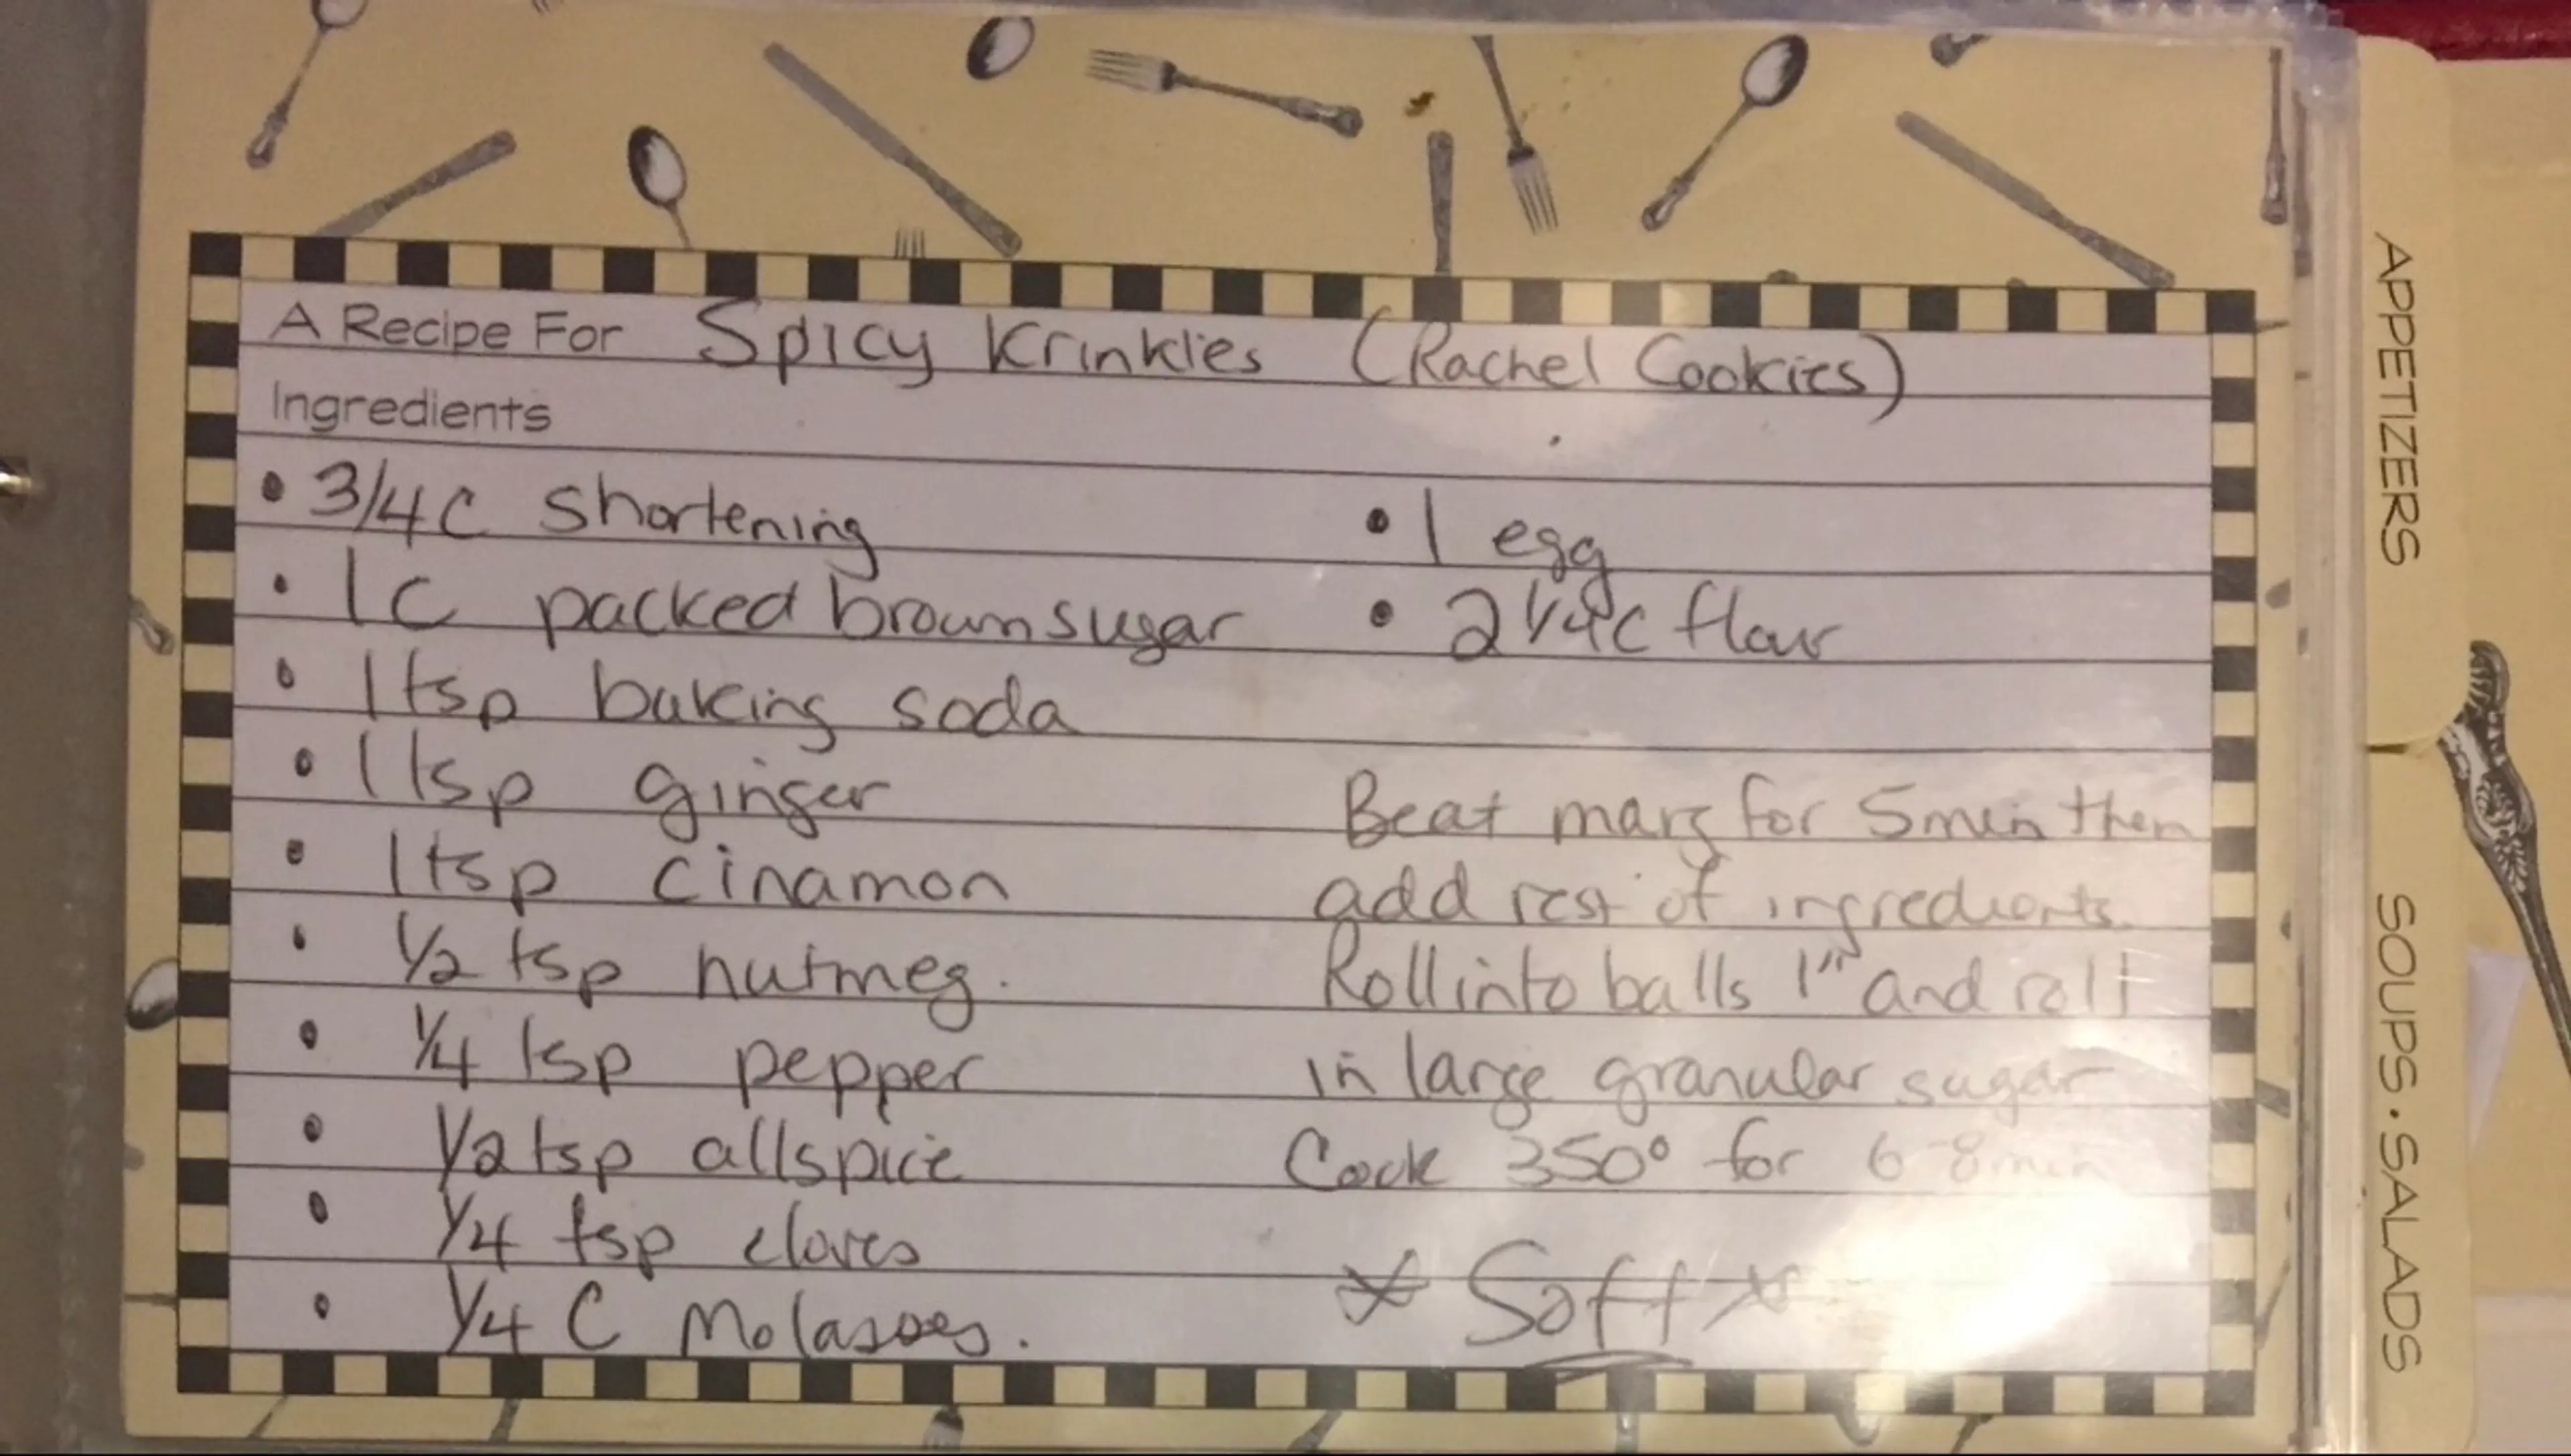 A Recipe For Spicy Krinkles (Rachel Cookies)
Ingredients
• 3/4 C shortening
• 1 C packed brown sugar
• 1 tsp baking soda
• 1 tsp ginger
• 1 tsp cinamon
• 1/2 tsp nutmeg.
• 1/4 tsp pepper
• 1/2 tsp allspice
• 1/4 tsp cloves
• 1/4 C Molasses.
• 1 egg
• 2 1/4 C flour
Beat marg for 5 min then
add rest of ingredients.
Roll into balls 1" and roll
in large granular sugar
Cook 350° for 6-8 min
* Soft *
APPETIZERS
SOUPS • SALADS